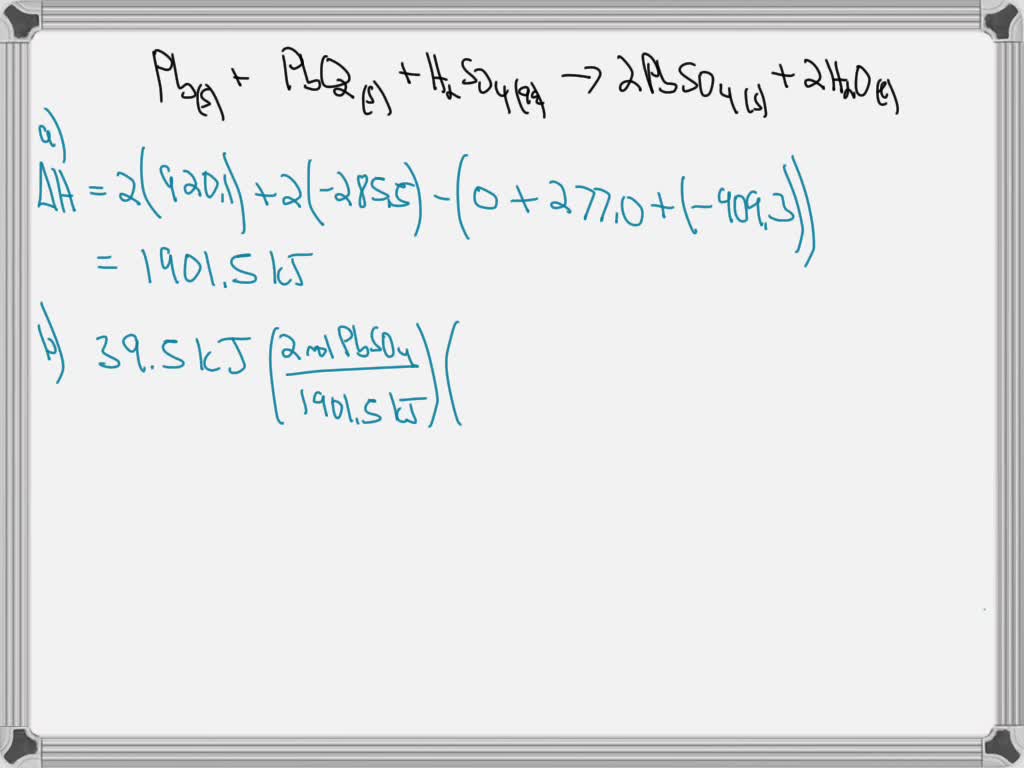 Pb(s) + PbO2(s) + H2SO4(aq) → 2PbSO4(s) + 2H2O(l)
a)
ΔH = 2(920.1) + 2(-285.5) - (0 + 277.0 + (-909.3))
= 1901.5 kJ
b) 39.5 kJ (2 mol PbSO4 / 1901.5 kJ) (